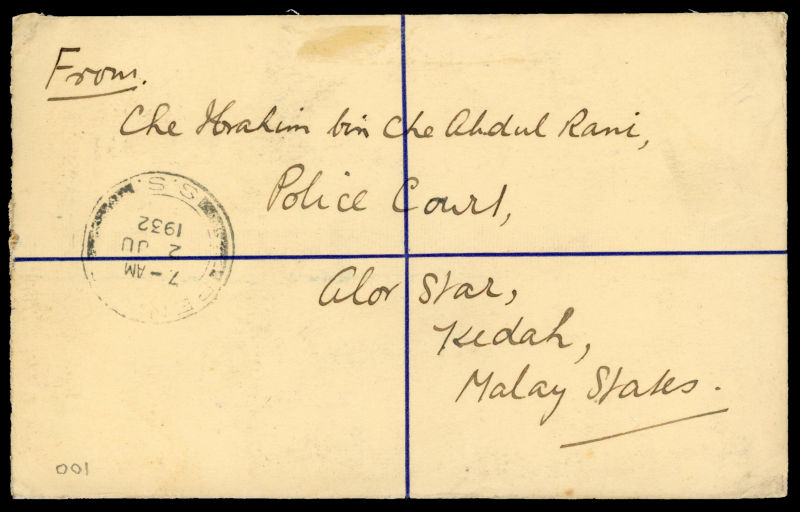 From.
Che Ibrahim bin Che Abdul Rani,
Police Court,
Alor Star,
Kedah,
Malay States.
S.S.
7 - AM
2 JU
1932
001